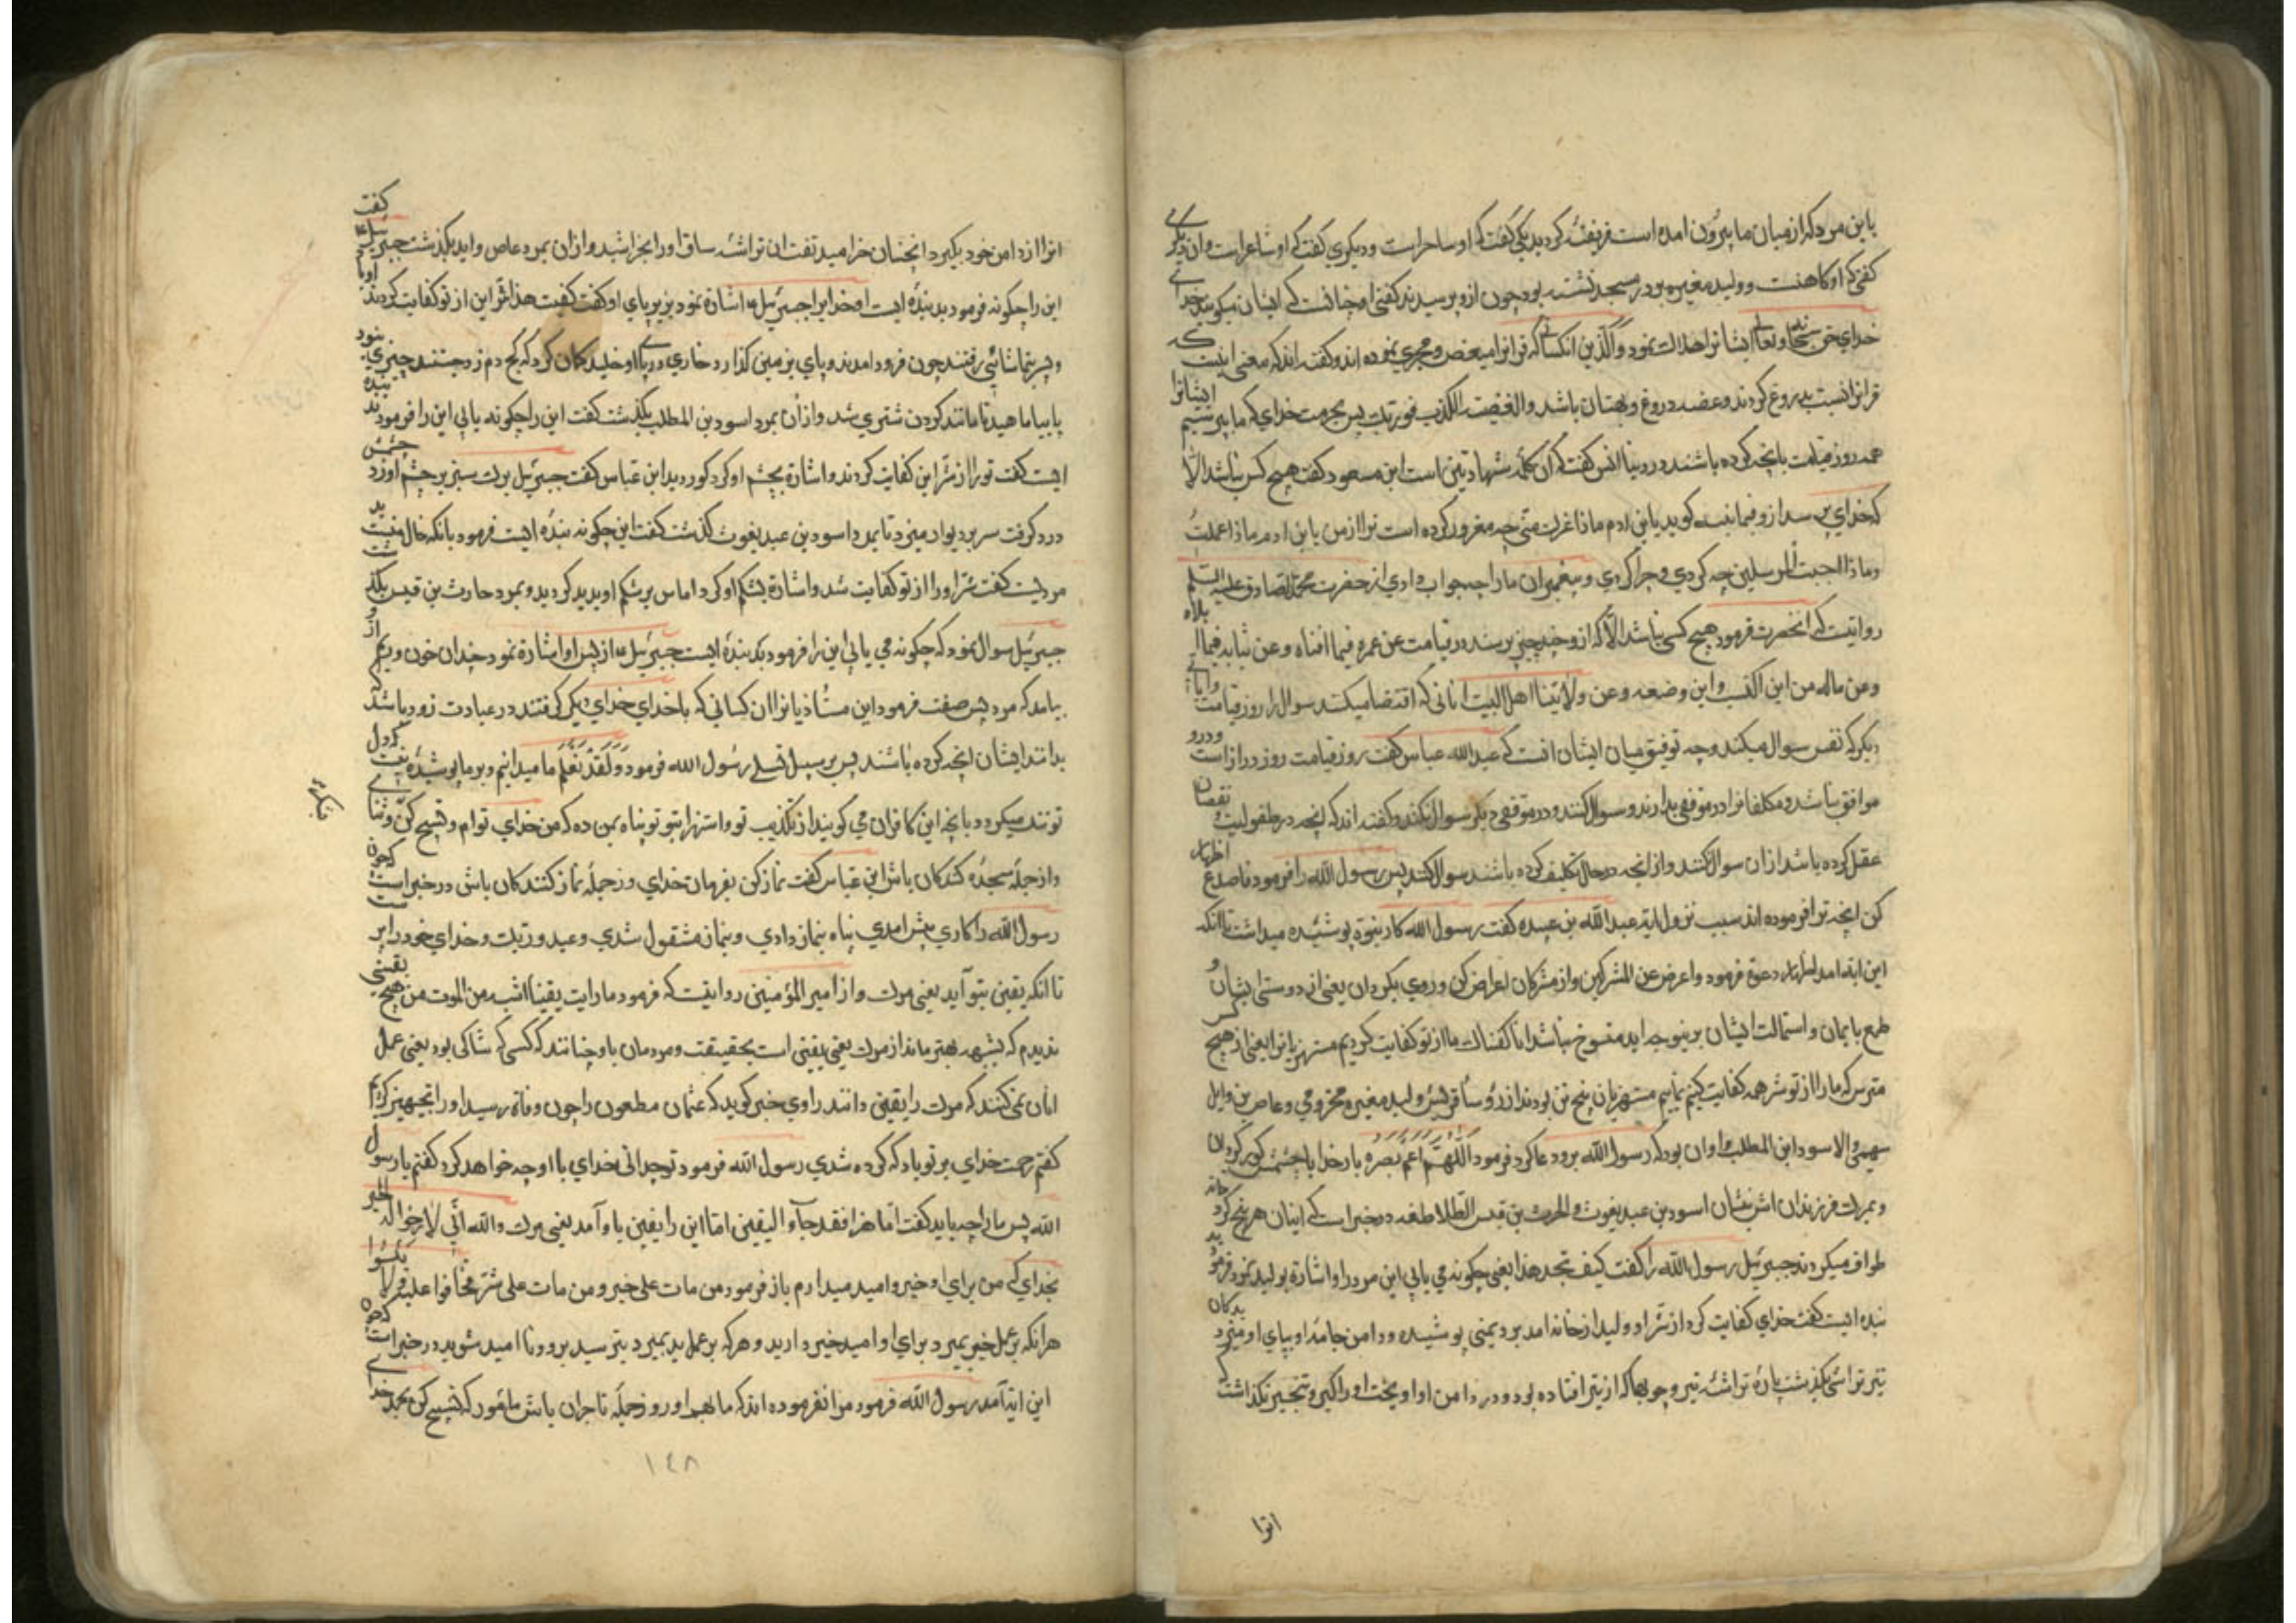 با این مرد که از میان ما بیرون امده است فریفته کردید یکی کفت که او ساحر است و دیکری کفت که او شاعر است و ان دیکری
کفتی که او کاهنست و ولید مغیره بود در مسجد نشسته بود چون ازو پرسیدندی کفتی او چنانست که ایشان میکویند خدای
خدای حق سبحانه و تعالی ایشانرا هلاک نمود و الذین انکسانی که قرانرا میعض و مجزی نموده اند و کفته اند که معنی اینست که
قرانرا نسبت بدروغ کردند و عضه دروغ و بهتان باشد والعضیت الکذب فوربک پس بحرمت خدای که ما بپرسیم ایشانرا
همه روز قیامت بانچه کرده باشند در دنیا انس کفت که ان کلمه شهادتین است ابن مسعود کفت هیچ کس نباشد الا
که خدای بپرسد ازو فیما بینه کوید یابن ادم ماذا غرک منی چه مغرور کرده است ترا از من یابن ادم ماذا عملت
و ماذا اجبت المرسلین چه کردی و چرا کردی و پیغمبران ما را چه جواب دادی از حضرت محمد الصادق علیه السلم
روایتست که انحضرت فرمود هیچ کسی نباشد الا که ازو چند چیز پرسند در قیامت عن عمره فیما افناه و عن شبابه فیما ابلاه
و عن ماله من این اکتسب و این وضعه و عن ولایتنا اهل البیت انانی که اقتضا میکند سوال را روز قیامت و ایاتی
دیکر که نفی سوال میکند و چه توفیق میان ایشان انست که عبد الله عباس کفت روز قیامت روز دراز است و درو
مواقف باشد و مکلفانرا در موقفی بدارند و سوال کنند و در موقفی دیکر سوال نکنند و کفته اند که انچه در طفولیت و نقصان
عقل کرده باشد از ان سوال نکنند و از انچه در حال تکلیف کرده باشند سوال کنند پس رسول الله را فرمود فاصدع اظهار
کن انچه ترا فرموده اند سبب نزول ایه عبد الله بن عبیده کفت رسول الله کار نبوة پوشیده میداشت تا انکه
این ایة امد اظهار دعوة فرمود و اعرض عن المشرکین و از مشرکان اعراض کن و روی بکردان یعنی از دوستی ایشان و
طمع بایمان و استمالت ایشان برینوجه ایه منسوخ نباشد انا کفیناک ما از تو کفایت کردیم مستهزیانرا یعنی از هیچ کس
مترس که ما را از تو شر همه کفایت کنیم نماییم مستهزیان پنج تن بودند از رؤسأ قریش ولید مغیره مخزومی و عاص بن وایل
سهمی و الاسود ابن المطلب و ان بود که رسول الله برو دعا کرد فرمود اللهم اعم بصره بار خدایا چشمش کور کردان
و بمرک فرزندان اش بنشان اسود بن عبد یغوث و الحرث بن قیس الطلاطله در خبر است که اینان هر پنج کرد خانه
طواف میکردند جبرئیل رسول الله را کفت کیف تجد هذا یعنی چکونه می یابی این مرد را و اشارة بولید نمود فرمود بد
بنده ایست کفت خدای کفایت کرد از تو شر او ولید از خانه امد برد یمنی پوشیده و دامن جامه او بپای او میزد بدکان
تیر تراشی بکذشت پارهٔ تراشه تیر و چوبها که از تیر افتاده بود در دامن او اویخت او را کبر و تجبر نکذاشت که
انرا
انرا از دامن خود بکیرد انچنان خرامید تفت ان تراشه ساق او را بخراشید و از ان بمرد عاص وایل بکذشت جبرئیل ع کفت
این را چکونه فرمود بد بنده ایست او خدایرا جبرئیل ع اشاره نمود بزیر پای او کفت کفیت هذا شر این از تو کفایت کردند او با
و پسر بتماشائی رفتند چون فرود امدند و پای بر زمین کذارد خاری در پای او خلید کمان کرد که کژدم زد جستند چیزی نبود
پا بیاماهید تا مانند کردن شتری شد و از ان بمرد اسود بن المطلب بکذشت کفت این را چکونه یابی این را فرمود بد بنده
ایست کفت تو را از شر این کفایت کردند و اشارة بچشم او کرد کور دید ابن عباس کفت جبرئیل برک سبز بر چشم او زد چشمش
درد کرفت سر بر دیوار میزد تا بمرد اسود بن عبد یغوث کذشت کفت این چکونه بنده ایست فرمود بانکه خال منست بد
مردیست کفت شر او را از تو کفایت شد و اشارة بشکم او کرد اماس بر شکم او پدید کردید و بمرد حارث بن قیس بکذشت
جبرئیل سوال نمود که چکونه می یابی این را فرمود بد بنده ایست جبرئیل ع از پس او اشارة نمود چندان خون و ریم از و
بیامد که مرد پس صفت فرمود این مستهزیانرا ان کسانی که با خدای خدای دیکر کرفتند در عبادت زود باشد که
بدانند ایشان انچه کرده باشند پس بر سبیل تسلی رسول الله فرمود وَلَقَدْ نَعْلَمُ ما میدانیم و بر ما پوشیده نیست که دل
تو تنک میکردد بانچه این کافران می کویند از تکذیب تو و استهزا بتو تو پناه بمن ده که من خدای توام و تسبیح کن و ثنای
بکوی
و از جملهٔ سجده کنندکان باش ابن عباس کفت نماز کن بفرمان خدای و از جملهٔ نماز کنندکان باش در خبر است که چون
رسول الله را کاری پیش امدی پناه بنماز دادی و بنماز مشغول شدی و اعبد ربک و خدای خود را پرست
تا انکه یقین بتو آید یعنی موت و از امیر المؤمنین روایتست که فرمود ما رایت یقینا اشبه من الموت من هیچ یقینی
ندیدم که بشبهه بهتر ماند از موت یعنی یقینی است بحقیقت و مردمان باو چنانند که کسی که شاکی بود یعنی عمل
انان نمی کنند که موت را یقین دانند راوی خبر کوید که عثمان مظعون را چون وفاة رسید او را تجهیز کردیم
کفتم رحمت خدای بر تو باد که کرده شدی رسول الله فرمود تو چه دانی خدای با او چه خواهد کرد کفتم یا رسول
الله پس ما را چه باید کفت اما هذا فقد جآءه الیقین اما این را یقین باو آمد یعنی مرک والله انّی لارجو له الخیر
بخدای که من برای او خیر و امید میدارم باز فرمود من مات علی خیر و من مات علی شر فخافوا علیه و لا تیئسوا
هر انکه بر عمل خیر بمیرد برای او امید خیر دارید و هر که بر عمل بد بمیرد بترسید برو و نا امید شوید در خبر است که چون
این ایة آمد رسول الله فرمود مرا نفرموده اند که مال بهم اور و از جملهٔ تاجران باش مامور که تسبیح کن بحمد خدای
١٤٨